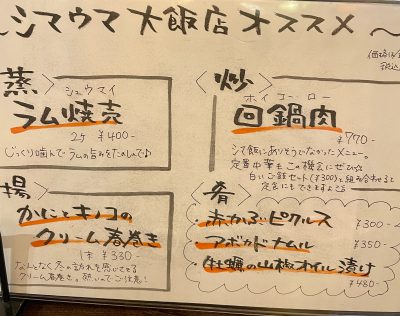 シマウマ大飯店オススメ
価格は
税込
<蒸>
シュウマイ
ラム焼売
2ケ ¥400-
じっくり噛んでラムの旨みをたのしんで♪
<炒>
ホイコーロー
回鍋肉
¥770-
シマ飯にありそうでなかったメニュー。
定番中華もこの機会にぜひ☆
白いご飯セット(¥300)と組み合わせると
定食にもできますよ
揚>
かにとキノコの
クリーム春巻き
1本 ¥330-
なんとなく冬の訪れを感じさせる
クリーム春巻き。熱いのでご注意!
<肴>
・赤かぶピクルス ¥300-
・アボカドナムル ¥350-
・牡蠣の山椒オイル漬け
¥480-